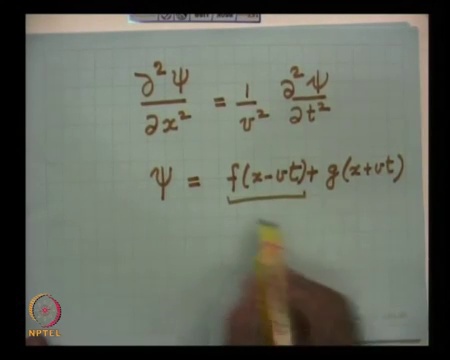 ∂²Ψ/∂x² = 1/v² ∂²Ψ/∂t²
Ψ = f(x-vt) + g(x+vt)
NPTEL